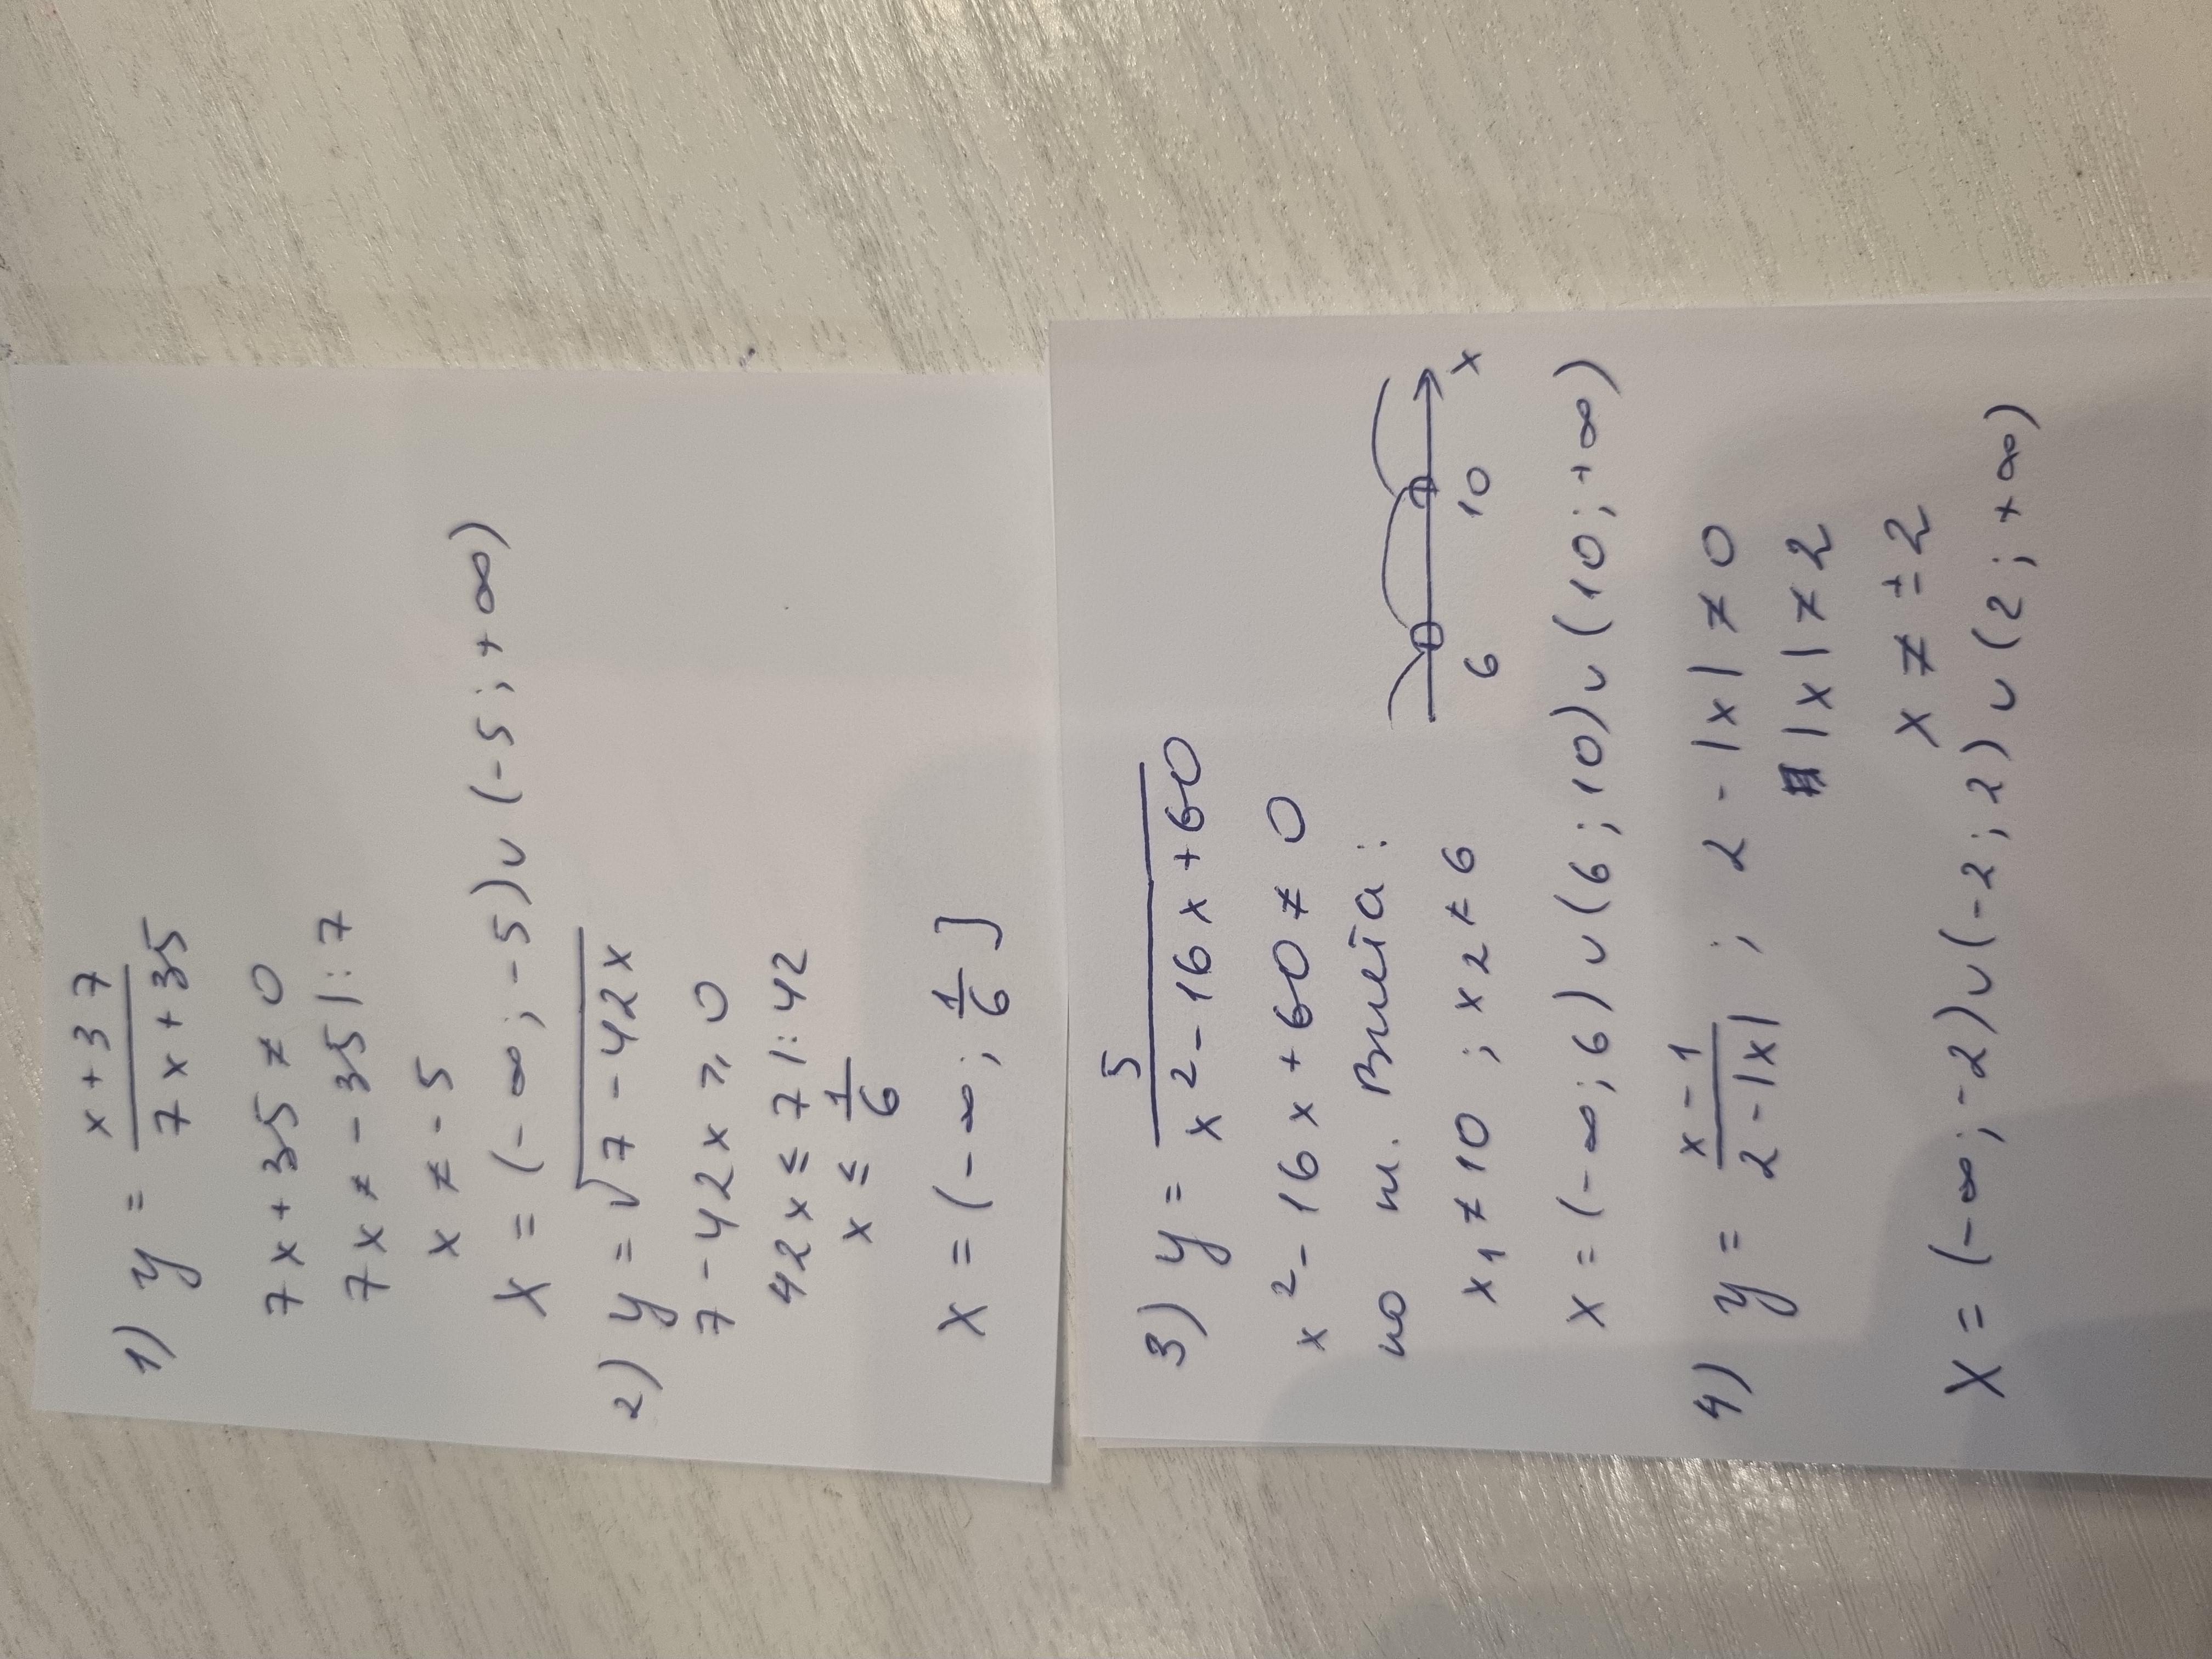 1) y = x + 37 / 7x + 35
7x + 35 ≠ 0
7x ≠ -35 |:7
x ≠ -5
X = (-∞; -5) ∪ (-5; +∞)
2) y = √7 - 42x
7 - 42x ≥ 0
42x ≤ 7 |:42
x ≤ 1/6
X = (-∞; 1/6]
3) y = 5 / x² - 16x + 60
x² - 16x + 60 ≠ 0
по т. Виета:
x₁ ≠ 10 ; x₂ ≠ 6
6 10 x
X = (-∞; 6) ∪ (6; 10) ∪ (10; +∞)
4) y = x - 1 / 2 - |x| ; 2 - |x| ≠ 0
|x| ≠ 2
x ≠ ±2
X = (-∞; -2) ∪ (-2; 2) ∪ (2; +∞)